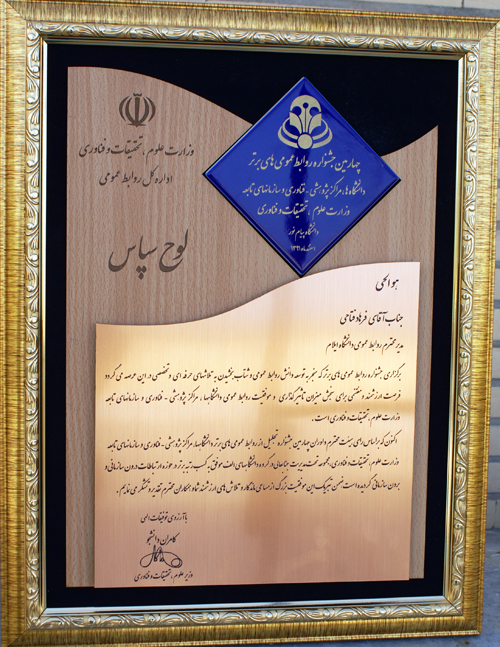 وزارت علوم، تحقیقات و فناوری
اداره کل روابط عمومی
لوح سپاس
چهارمین جشنواره روابط عمومی های برتر
دانشگاه ها، مراکز پژوهشی - فناوری و سازمانهای تابعه
وزارت علوم، تحقیقات و فناوری
دانشگاه پیام نور
اسفند ماه ۱۳۹۱
هو الحی
جناب آقای فرهاد فتاحی
مدیر محترم روابط عمومی دانشگاه ایلام
برگزاری جشنواره روابط عمومی های برتر که منجر به توسعه دانش روابط عمومی و شتاب بخشیدن به تلاشهای حرفه ای و تخصصی در این عرصه می گردد
فرصت ارزشمند و مغتنمی برای سنجش میزان تاثیر گذاری و موفقیت روابط عمومی دانشگاهها، مراکز پژوهشی - فناوری و سازمانهای تابعه
وزارت علوم، تحقیقات و فناوری است.
اکنون که بر اساس رای هیئت محترم داوران چهارمین جشنواره تجلیل از روابط عمومی های برتر دانشگاهها، مراکز پژوهشی - فناوری و سازمانهای تابعه
وزارت علوم، تحقیقات و فناوری، مجموعه تحت مدیریت جنابعالی در گروه دانشگاههای الف موفق به کسب رتبه برتر در حوزه ارتباطات درون سازمانی و
برون سازمانی گردیده است ضمن تبریک این موفقیت بزرگ از مساعی ماندگار و تلاش های ارزشمند شما و همکاران محترم تقدیر و تشکر می نمایم.
با آرزوی توفیقات الهی
کامران دانشجو
وزیر علوم، تحقیقات و فناوری